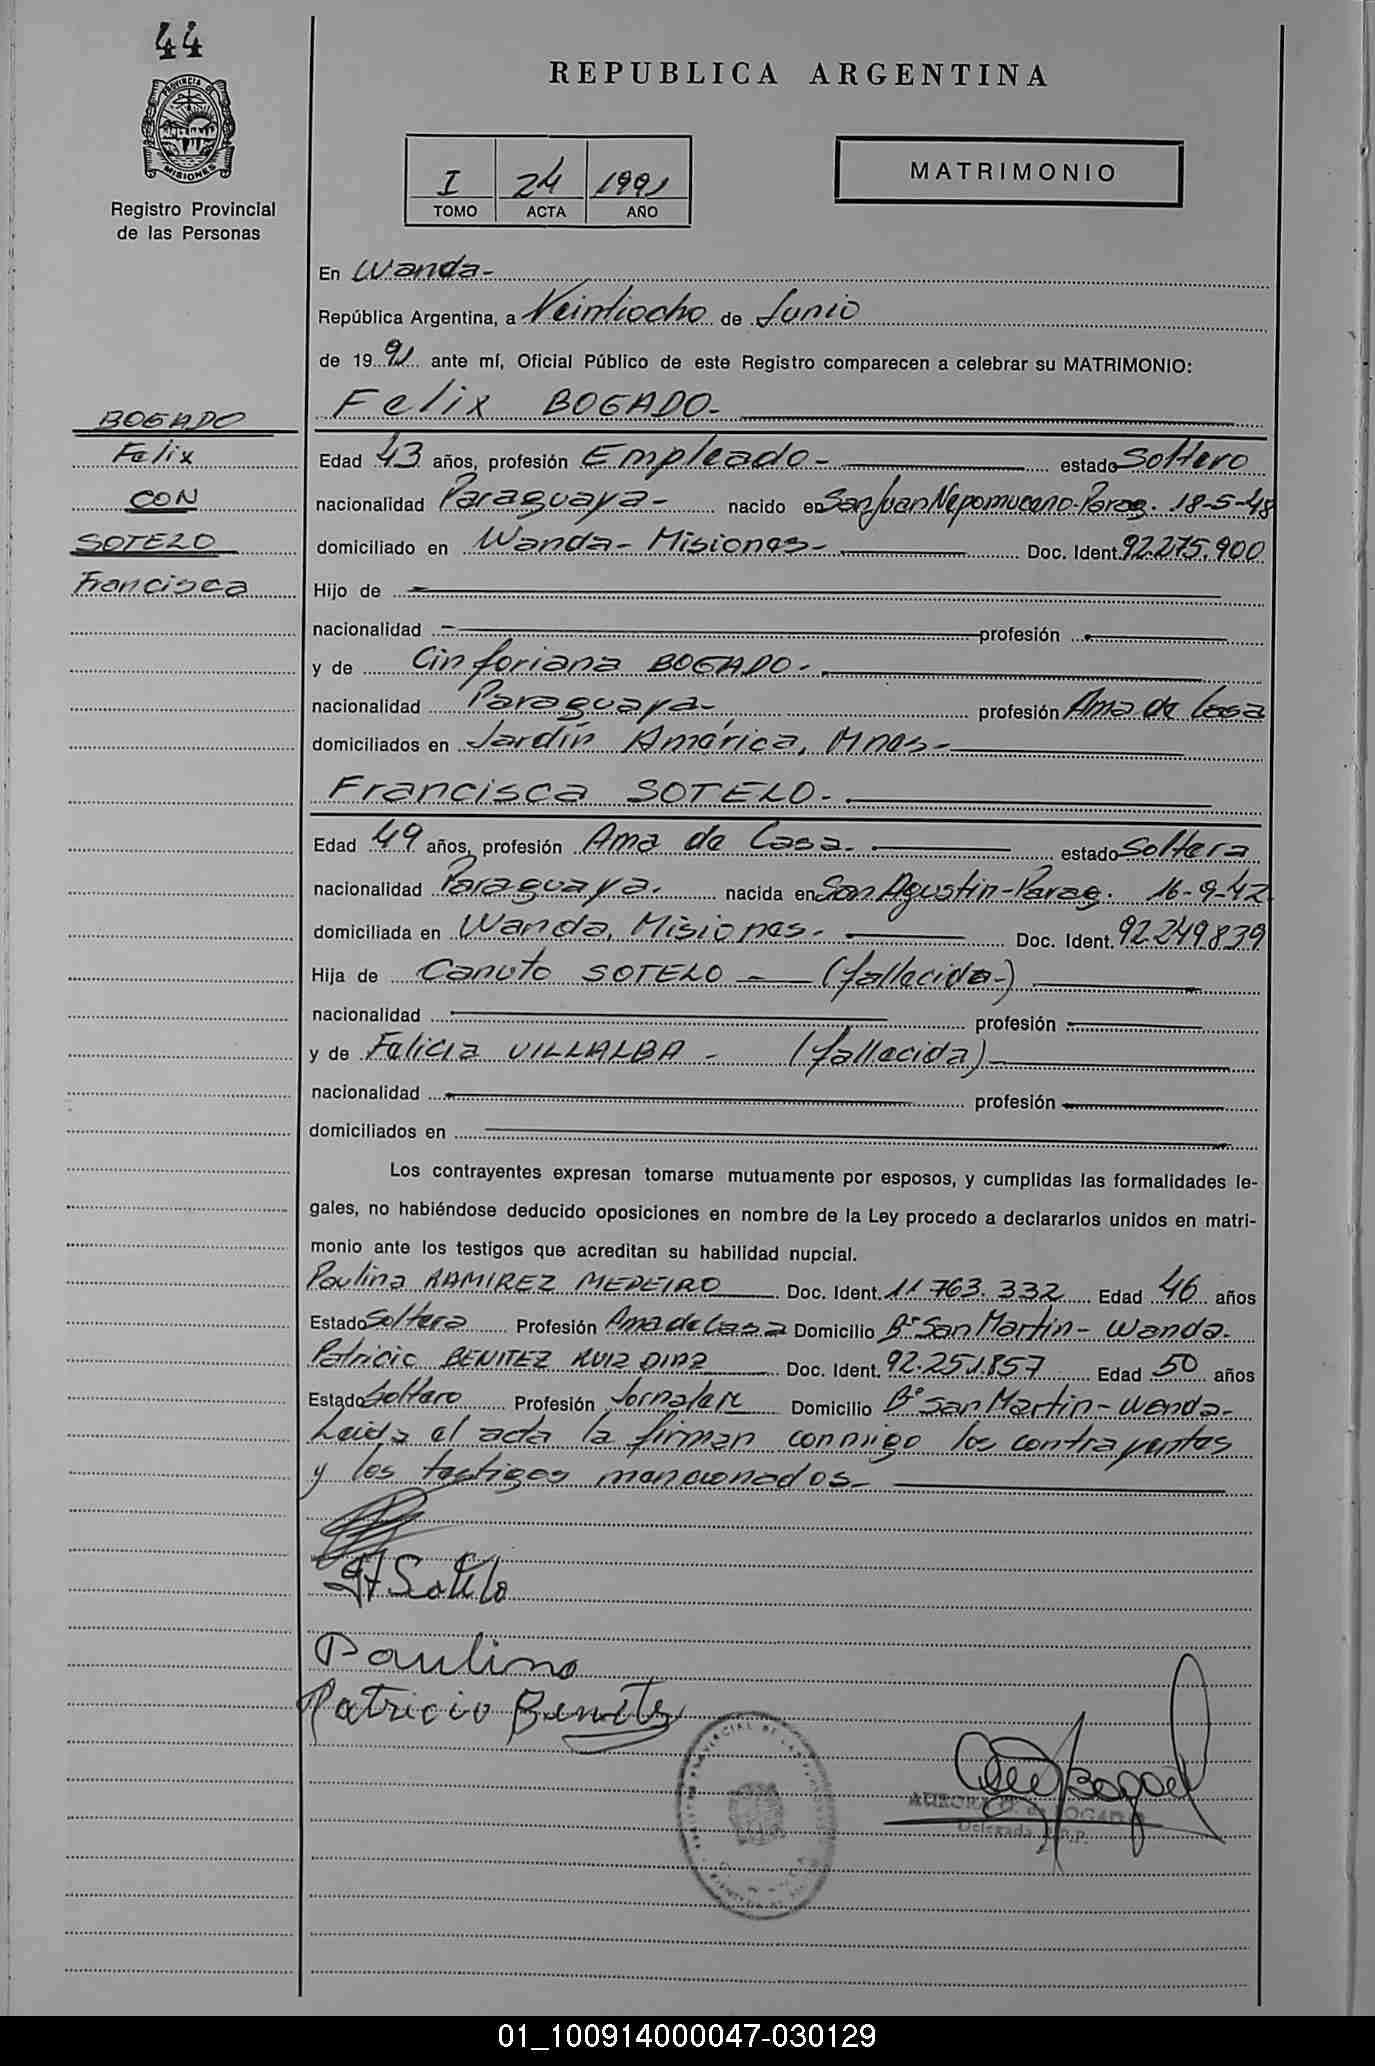 44
PROVINCIA DE
MISIONES
Registro Provincial
de las Personas
REPUBLICA ARGENTINA
I 24 1991
TOMO ACTA AÑO
MATRIMONIO
En Wanda-
República Argentina, a Veintiocho de Junio
de 19 91 ante mí, Oficial Público de este Registro comparecen a celebrar su MATRIMONIO:
BOGADO
Felix
CON
SOTELO
Francisca
Felix BOGADO-
Edad 43 años, profesión Empleado- estado Soltero
nacionalidad Paraguaya- nacido en San Juan Nepomuceno-Parag. 18-5-48
domiciliado en Wanda- Misiones- Doc. Ident. 92.275.900
Hijo de -
nacionalidad - profesión
y de Cinforiana BOGADO-
nacionalidad Paraguaya- profesión Ama de Casa
domiciliados en Jardín América, Mnes-
Francisca SOTELO-
Edad 49 años, profesión Ama de Casa- estado Soltera
nacionalidad Paraguaya. nacida en San Agustin-Parag. 16-9-42
domiciliada en Wanda, Misiones- Doc. Ident. 92.249.839
Hija de Canuto SOTELO (fallecido-)
nacionalidad profesión
y de Felicia VILLALBA - (fallecida)
nacionalidad profesión
domiciliados en
Los contrayentes expresan tomarse mutuamente por esposos, y cumplidas las formalidades le-
gales, no habiéndose deducido oposiciones en nombre de la Ley procedo a declararlos unidos en matri-
monio ante los testigos que acreditan su habilidad nupcial.
Paulina RAMIREZ MEDEIRO Doc. Ident. 11.763.332 Edad 46 años
Estado Soltera Profesión Ama de Casa Domicilio Bº San Martin- Wanda-
Patricio BENITEZ RUIZ DIAZ Doc. Ident. 92.251.857 Edad 50 años
Estado Soltero Profesión Jornalero Domicilio Bº San Martin-Wanda-
Leida el acta la firman conmigo los contrayentes
y los testigos mencionados-
Sotelo
Paulina
Patricio Benitez
AURORA de BOGADO
Delegada R.P.
01_100914000047-030129